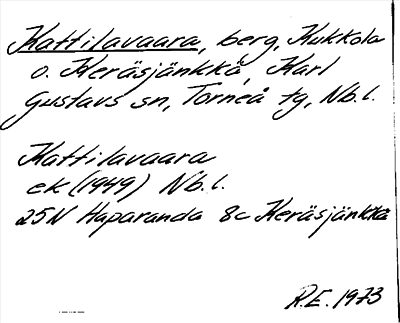 Kattilavaara, berg, Kukkola
o. Keräsjänkkä, Karl
Gustavs sn, Torneå tg, Nb.l.
Kattilavaara
ek (1949) Nb.l.
25N Haparanda 8c Keräsjänkkä
R.E. 1973